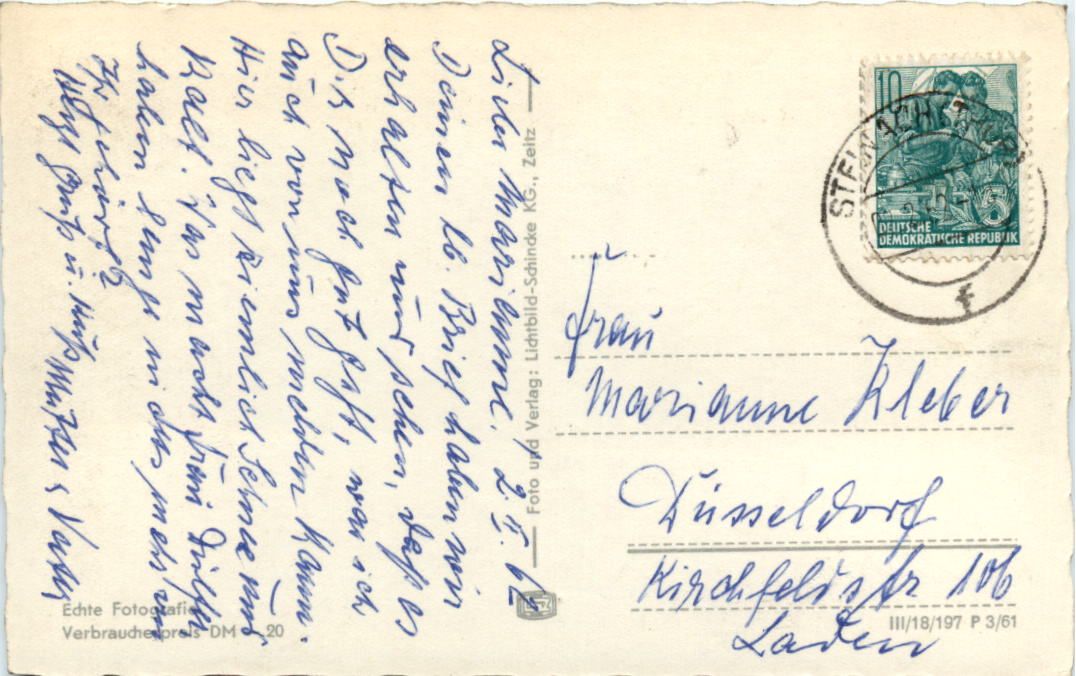 Liebe Marianne. 2.II.62
Deinen lb. Brief haben wir
erhalten und sehen, daß es
Dir noch gut geht, was ich
auch von uns melden kann.
Hier liegt ziemlich Schnee und
kalt. Was macht Frau
haben lange nichts mehr von
Ihr gehört?
Gruß u. Kuß Mutter & Vater
Foto und Verlag: Lichtbild-Schincke KG., Zeitz
10
5
DEUTSCHE
DEMOKRATISCHE REPUBLIK
f
Frau
Marianne Kleber
Düsseldorf
Kirchfeldstr 106
Laden
Echte Fotografie
Verbraucherpreis DM 20
III/18/197 P 3/61